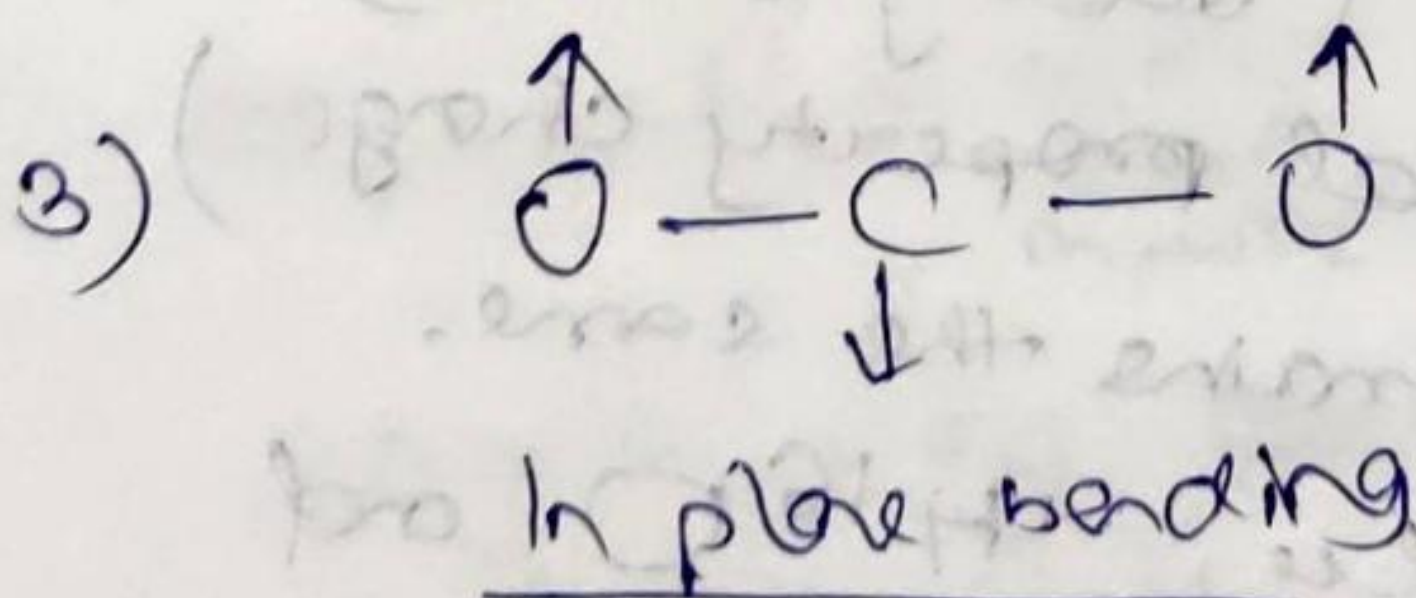 3) O — C — O
In plane bending